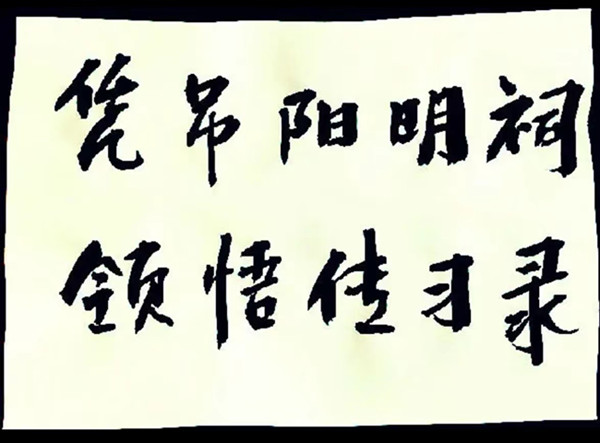 凭吊阳明祠
领悟传习录